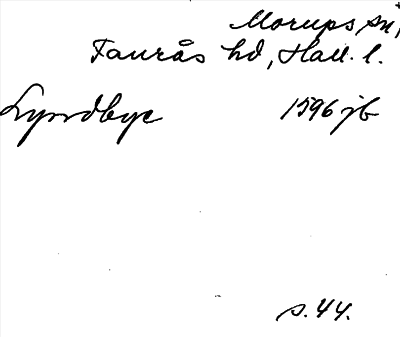 Morups sn,
Faurås hd, Hall. l.
Lyndbye 1596 jb
s. 44.